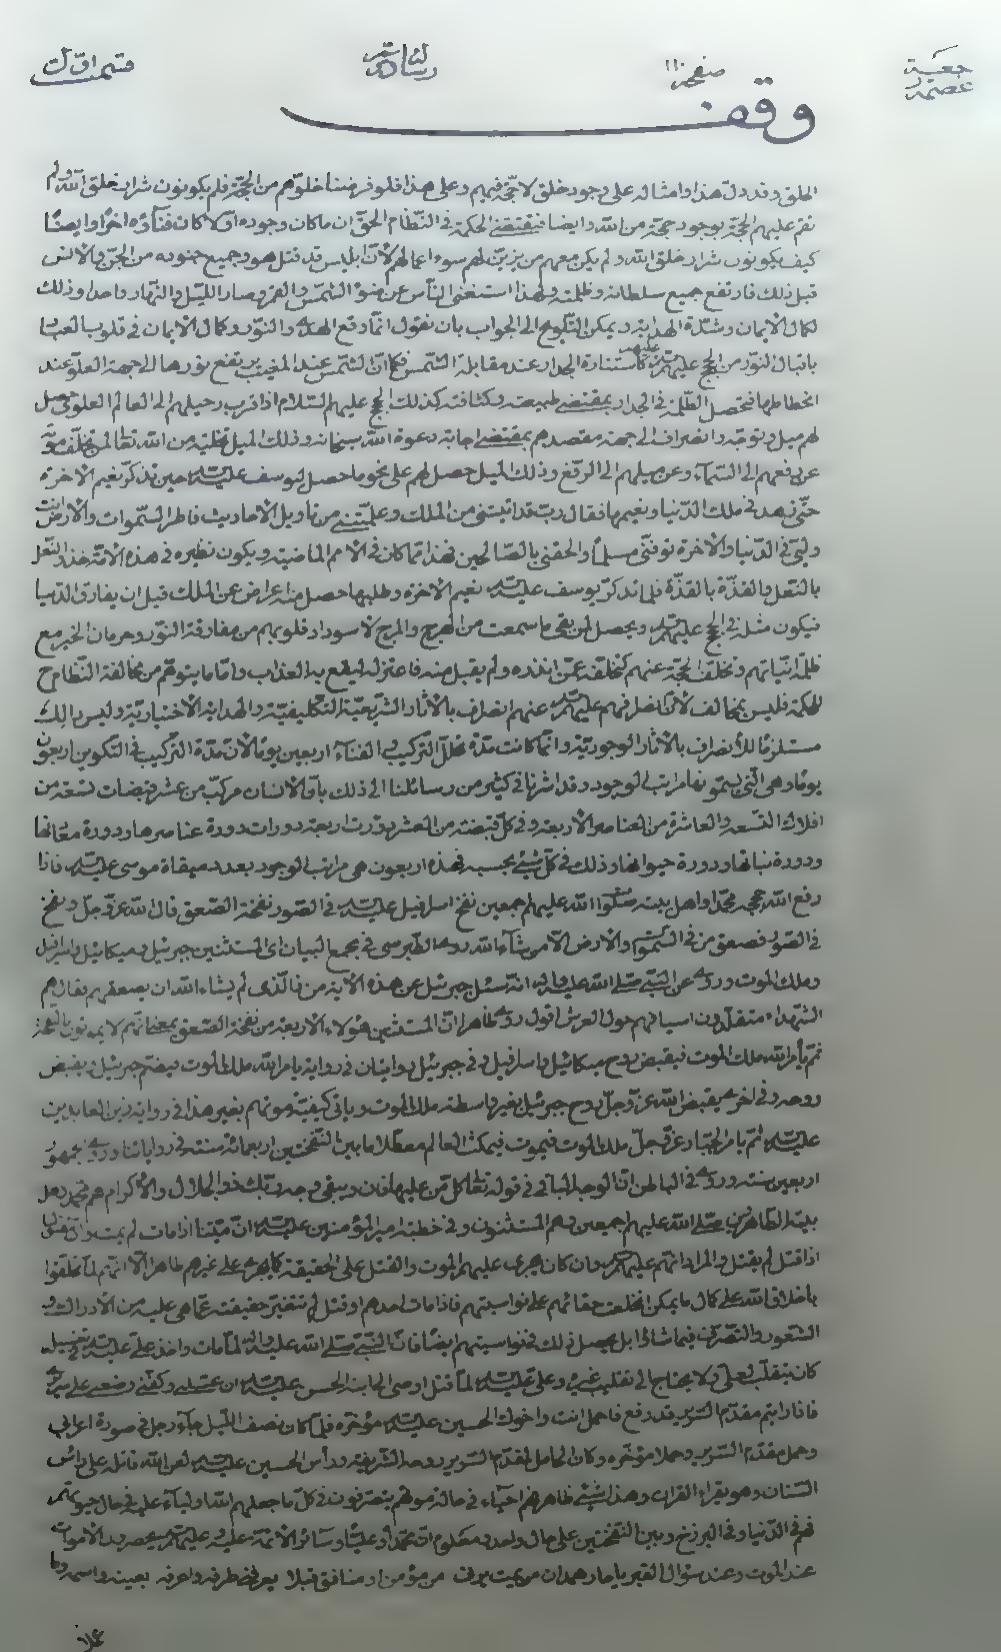 صفحه ١١٠
وقف
الخلق وقد دل هذا وامثاله على وجود خلق لا حجّة فيهم وعلى هذا فلو فرضنا خلوّهم من الحجّة فلم يكونون شرار خلق الله ولم
تقم عليهم الحجّة بوجود حجّة من الله وايضا فمقتضى الحكمة في النّظام الحق ان ما كان وجوده اوّلا كان فناؤه اخرًا وايضًا
كيف يكونون شرار خلق الله ولم يكن معهم من يزيّن لهم سوء اعمالهم لأنّ ابليس قد قتل هو وجميع جنوده من الجنّ والانس
قبل ذلك فارتفع جميع سلطانه وظلمته ولهذا استغنى النّاس عن ضوء الشمس والقمر وصار الليل والنهار واحدا وذلك
لكمال الايمان وشدّة الهداية ويمكن التلويح الى الجواب بان نقول انّما وقع الهدى والنور وكمال الايمان في قلوب العباد
باقبال النّور من الحجج عليهم كاستنارة الجدار عند مقابلة الشمس فكما انّ الشمس عند المغيب يرتفع نورها الى جهة العلو عند
انحطاطها فتحصل الظّلمة في الجدار بمقتضى طبيعته وكثافته كذلك الحجج عليهم السلام اذا قرب رحيلهم الى العالم العلوي حصل
لهم ميل وتوجّه وانصراف الى جهة مقصدهم بمقتضى اجابة دعوة الله سبحانه وذلك الميل تخلية من الله تعالى
عن رفعهم الى السّماء وعن ميلهم الى الرّفع وذلك الميل حصل لهم على نحو ما حصل ليوسف عليه السلام حين تذكر نعيم الاخرة
حتّى زهد في ملك الدّنيا ونعيمها فقال ربّ قد اتيتنى من الملك وعلّمتنى من تأويل الاحاديث فاطر السّموات والارض انت
وليّي في الدّنيا والاخرة توفّني مسلمًا والحقني بالصّالحين فهذا ممّا كان في الامم الماضية ويكون نظيره في هذه الامّة حذو النّعل
بالنّعل والقذّة بالقذّة فلمّا تذكّر يوسف عليه السلام نعيم الاخرة وطلبها حصل منه اعراض عن الملك قبل ان يفارق الدّنيا
فيكون مثله في الحجج عليهم السلام ويحصل لمن بقي ما سمعت من الهرج والمرج لاسوداد قلوبهم من مفارقة النّور وحرمان الخير مع
ظلمة انيّاتهم وتخلّف الحجّة عنهم كتخلّفه عمّن انذره ولم يقبل منه فاعتزله ليقع به العذاب وامّا ما يتوهّم من مخالفة النّظام ح
للحكمة فليس بمخالف لأنّ انصرافهم عليهم السلام عنهم انصراف بالاثار الشريعيّة التّكليفيّة والهداية الاختياريّة وليس ذلك
مستلزمًا للأنصراف بالاثار الوجوديّة وانّما كانت مدّة تحلّل التركيب في الفناء اربعين يومًا لأنّ مدّة التركيب في التّكوين اربعون
يومًا وهي الّتي يسمّونها مراتب الوجود وقد اشرنا في كثير من رسائلنا الى ذلك بأنّ الانسان مركّب من عشر قبضات تسعة من
افلاك التّسعه والعاشرة من العناصر الاربعة وفي كلّ قبضة من العشر دوّرت اربعة دورات دورة عناصرها ودورة معادنها
ودورة نباتها ودورة حيوانها وذلك في كلّ شيء بحسبه فهذه اربعون هي مراتب الوجود بعدد ميقاة موسى عليه السلام فاذا
رفع الله حججه محمّدا واهل بيته صلوات الله عليهم اجمعين نفخ اسرافيل عليه السلام في الصّور نفخة الصّعق قال الله عزّ وجلّ ونفخ
في الصّور فصعق من في السّموات والارض الّا من شآء الله روى الطبرسى في مجمع البيان اى المستثنين جبرئيل وميكائيل واسرافيل
وملك الموت وروى عن النّبيّ صلى الله عليه واله انّه سئل جبرئيل عن هذه الآية من ذا الّذى لم يشاء الله ان يصعقهم فقال هم
الشهداء متقلّدون اسيافهم حول العرش اقول روى ظاهرا انّ المستثنين هؤلاء الاربعة من نفخة الصّعق بمعنى انّهم لا يموتون بالنفخة
ثمّ يأمر الله ملك الموت فيقبض روح ميكائيل واسرافيل وفي جبرئيل روايتان في رواية يامر الله ملك الموت فيضمّ جبرئيل ويقبض
روحه وفي اخرى يقبض الله عزّ وجلّ روح جبرئيل بغير واسطة ملك الموت وباقي كيفيّة موتهم بغير هذا في رواية زين العابدين
عليه السلام ثمّ يأمر الجبّار عزّ وجلّ ملك الموت فيموت فيمكث العالم معطّلا ما بين النّفختين اربعمائة سنة في رواياتنا وروى جمهور
اربعين سنة وروى في الباطن انّ الوجه الباقي في قوله تعالى كلّ من عليها فان ويبقى وجه ربّك ذو الجلال والأكرام هم محمّد واهل
بيته الطّاهرين صلى الله عليهم اجمعين وهم المستثنون وفي خطبة امير المؤمنين عليه السلام انّ ميّتنا اذا مات لم يمت وانّ قتيلنا
اذا قتل لم يقتل والمراد انّهم عليهم السلام وان كان يجرى عليهم الموت والقتل على الحقيقة كما يجرى على غيرهم ظاهرا الّا انّهم لمّا تخلّقوا
باخلاق الله على كمال ما يمكن انخلعت حقائقهم على نواسيتهم فاذا مات احدهم او قتل لم تتغيّر حقيقته عمّا هي عليه من الادراك و
الشعور والتّصرّف فيما شاؤا بل يحصل ذلك في نواسيتهم ايضًا فانّ النّبيّ صلى الله عليه واله لمّا مات واخذ على عليه السلام في تغسيله
كان يتقلّب لعلى ولا يحتاج الى تقليب غيره وعلى عليه السلام لمّا قتل اوصى الى ابنه الحسن عليه السلام ان غسّلنى وكفّنى وضعنى على سريرى
فاذا رايتم مقدّم السّرير قد رفع فاحمل انت واخوك الحسين عليه السلام مؤخّره فلمّا كان نصف اللّيل جآء رجل في صورة اعرابى
وحمل مقدّم السّرير وحملا مؤخّره وكان الحامل لمقدّم السّرير روحه الشّريفة ورأس الحسين عليه السلام لعن الله قاتله على رأس
السّنان وهو يقراء القران وهذا شيء ظاهر فهم احياء في حالة موتهم يتصرّفون في كلّ ما جعلهم الله اولياء عليه في حال حيوتهم
فهم في الدّنيا وفي البرزخ وبين النّفختين على حال واحد ومعلوم انّ محمّدًا وعليًّا وسائر الائمّة عليه وعليهم السلام يحضرون الاموات
عند الموت وعند سؤال القبر يا حار همدان من يمت يرنى من مؤمن او منافق قبلا يعرفنى طرفه واعرفه بعينه واسمه وما
عملا